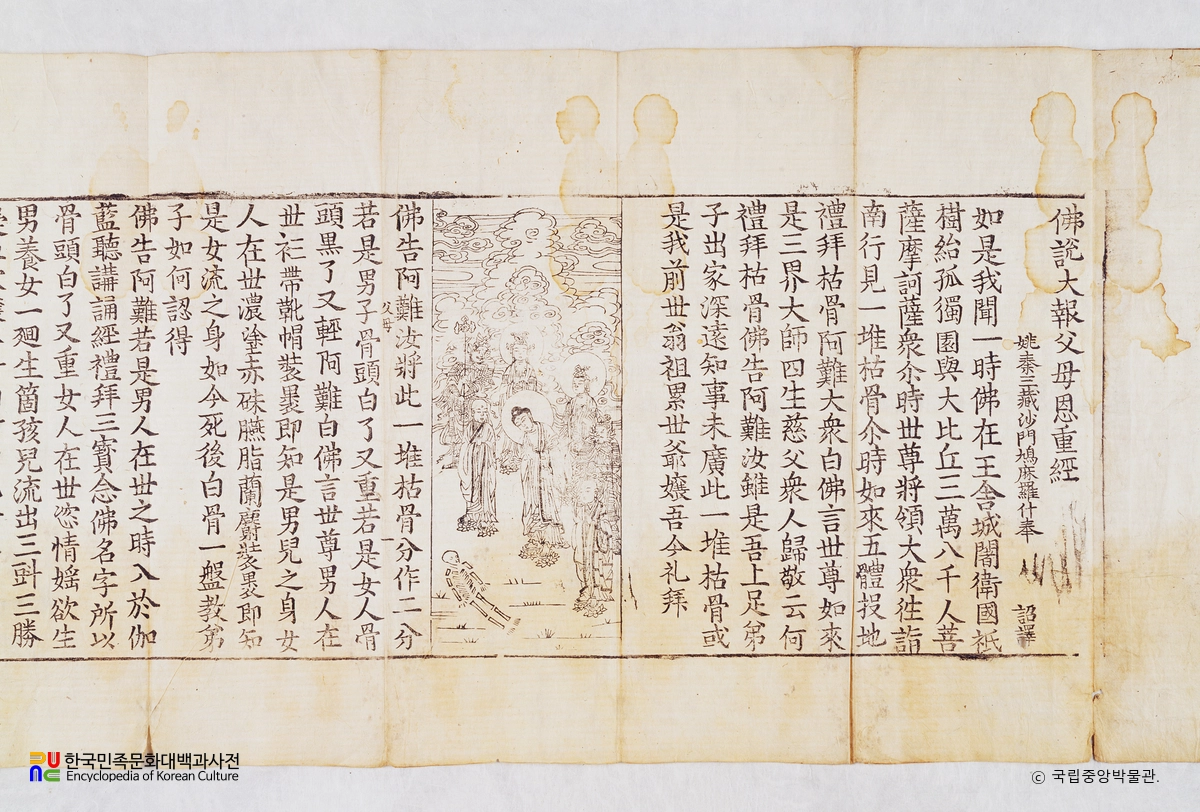 佛說大報父母恩重經
姚秦三藏沙門鳩摩羅什奉 詔譯
如是我聞一時佛在王舍城闍衛國祇
樹給孤獨園與大比丘三萬八千人菩
薩摩訶薩衆尒時世尊將領大衆徃詣
南行見一堆枯骨尒時如來五體投地
禮拜枯骨阿難大衆白佛言世尊如來
是三界大師四生慈父衆人歸敬云何
禮拜枯骨佛告阿難汝雖是吾上足弟
子出家深遠知事未廣此一堆枯骨或
是我前世翁祖累世爺孃吾今礼拜
佛告阿難汝將此一堆枯骨分作二分
父母
若是男子骨頭白了又重若是女人骨
頭黑了又輕阿難白佛言世尊男人在
世衫帶靴帽裝裹即知是男兒之身女
人在世濃塗赤硃臙脂蘭麝裝裹即知
是女流之身如今死後白骨一盤教弟
子如何認得
佛告阿難若是男人在世之時入於伽
藍聽講誦經禮拜三寶念佛名字所以
骨頭白了又重女人在世恣情婬欲生
男養女一廻生箇孩兒流出三㪷三勝
한국민족문화대백과사전
Encyclopedia of Korean Culture
© 국립중앙박물관.